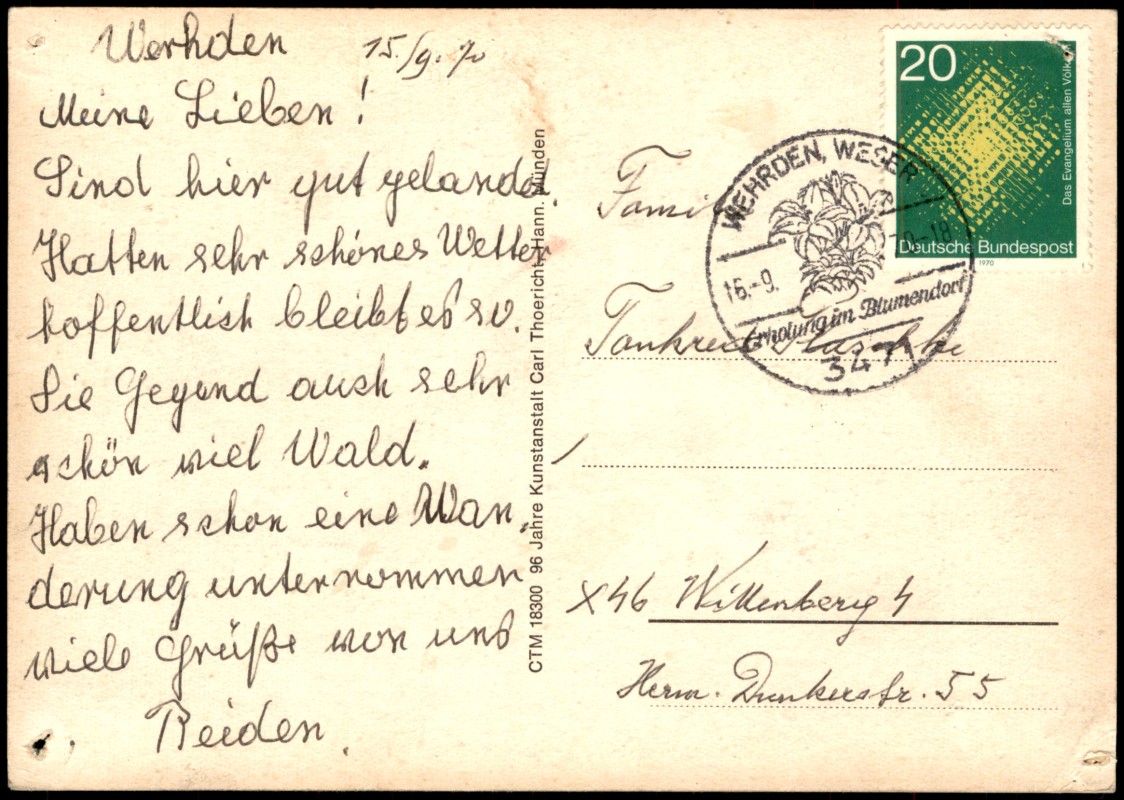 Werhden 15./9. 70
Meine Lieben!
Sind hier gut gelandet.
Hatten sehr schönes Wetter
hoffentlich bleibt es so.
Die Gegend auch sehr
schön viel Wald.
Haben schon eine Wan,
derung unternommen
viele Grüße von uns
Beiden.
CTM 18300 96 Jahre Kunstanstalt Carl Thoericht, Hann. Münden
20
Das Evangelium allen Völkern
Deutsche Bundespost
1970
WEHRDEN, WESER
16.-9. 70-18
Erholung im Blumendorf
3471
Tankred
X46 Wittenberg 4
Herm. Dunkerstr. 55